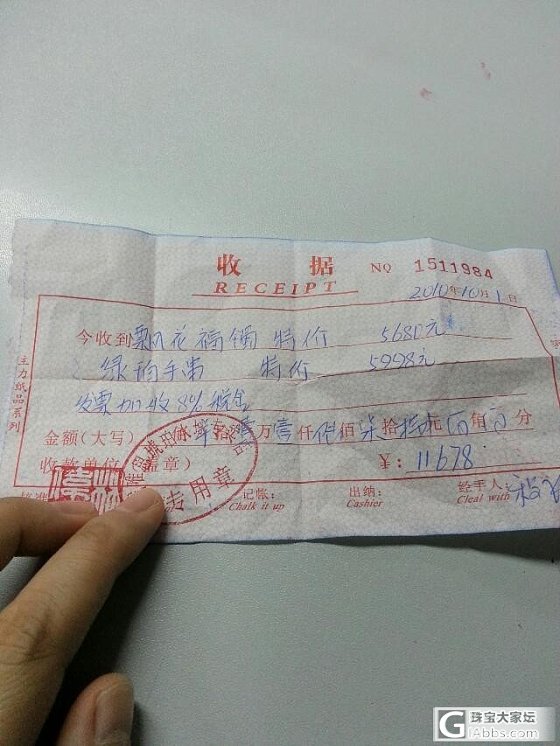 收 据 NO 1511984
RECEIPT
2010年10月1日
今收到飘花福镯 特价 5680元
绿 手串 特价 5998元
发票加收8%税金
金额(大写) 佰 拾 万壹仟 佰柒拾 元 角 分
收款单位(盖章) ¥:11678
记帐: 出纳: 经手人:
Chalk it up Cashier Cleal with
主力纸品系列
专用章
珠宝大家坛
GIAbbs.com